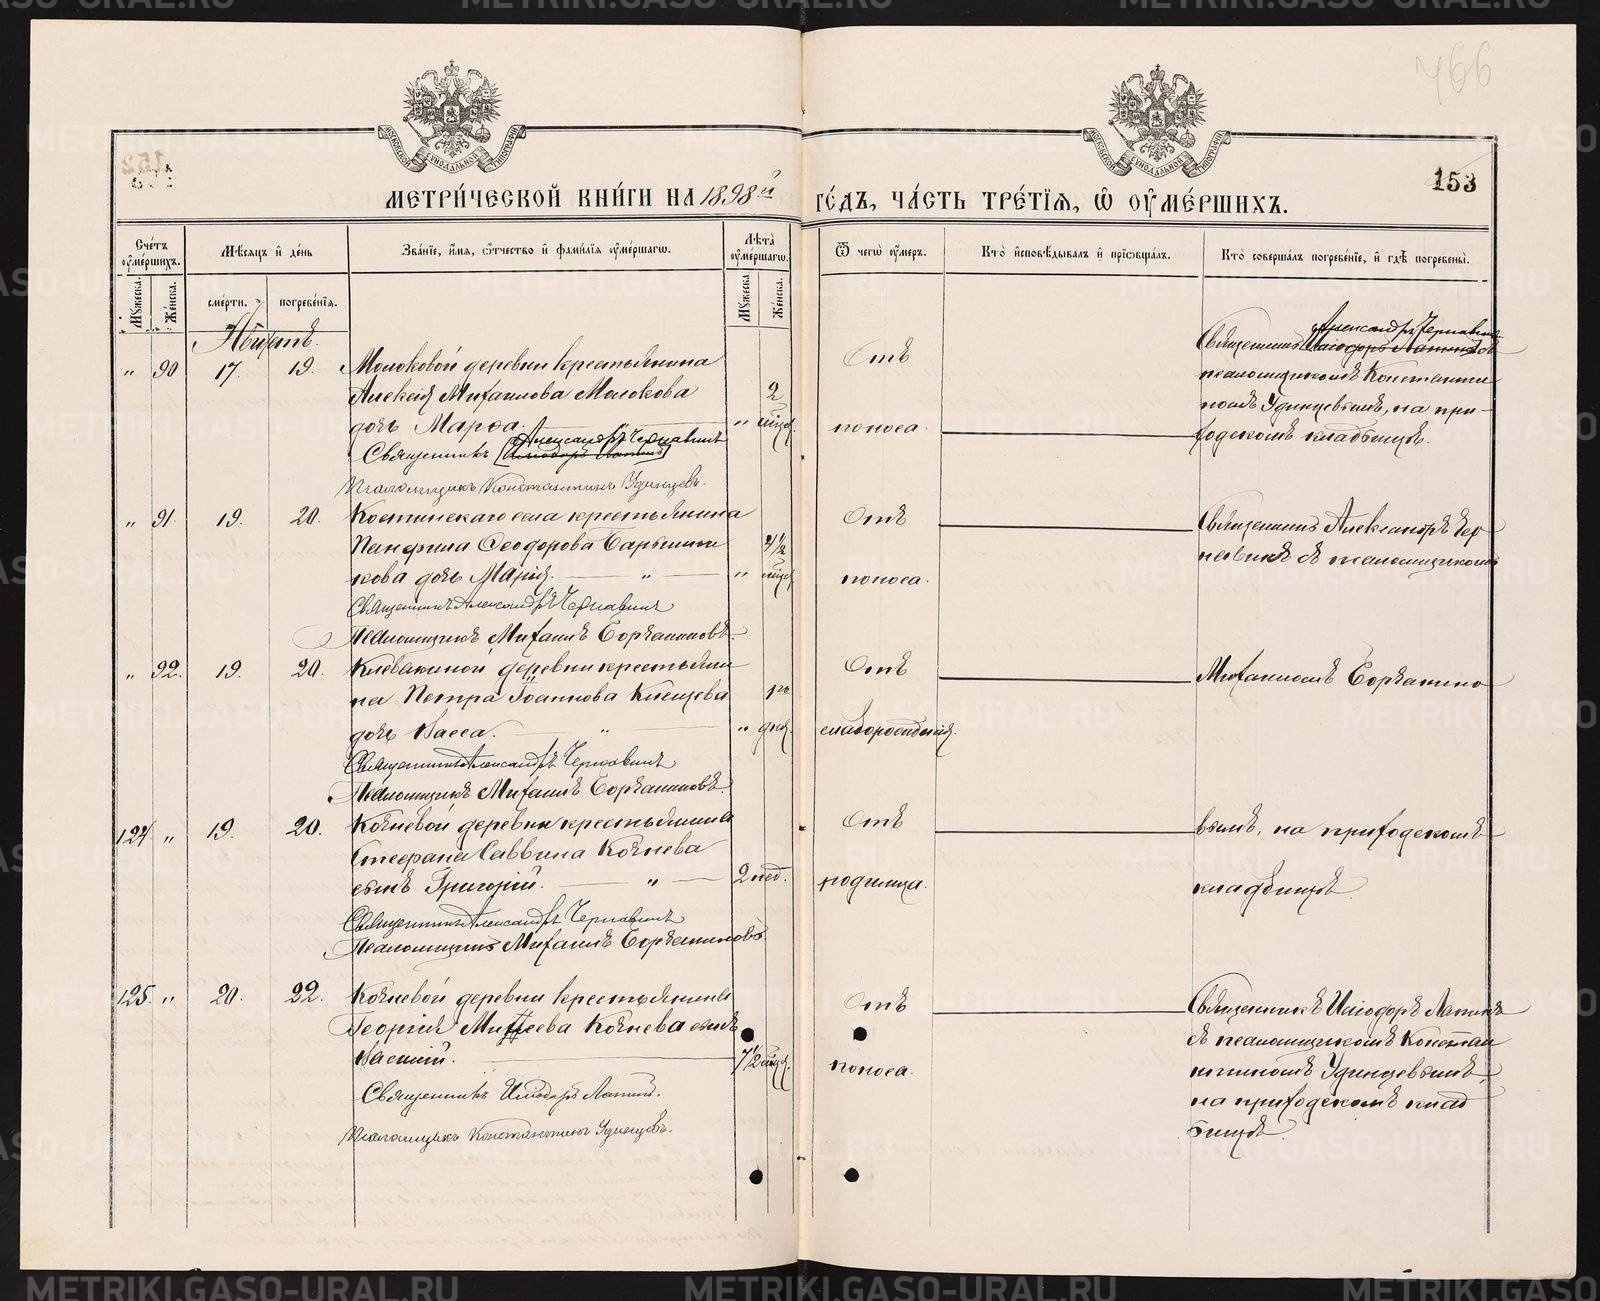 766
153
МОСКОВСКОЙ СУНОДАЛЬНОЙ ТИПОГРАФІИ
МОСКОВСКОЙ СУНОДАЛЬНОЙ ТИПОГРАФІИ
МЕТРИ́ЧЕСКОЙ КНИ́ГИ НА 1898й ГО́ДЪ, ЧА́СТЬ ТРЕ́ТІѦ, Ѡ ОУ҆МЕ́РШИХЪ.
Сче́тъ оу҆ме́ршихъ.
Мꙋжеска.
Же́нска.
Мѣ́сѧцъ и҆ де́нь
сме́рти.
погребе́нїѧ.
Зва́нїе, и҆́мѧ, ѻ҆́тчество и҆ фами́лїѧ оу҆ме́ршагѡ.
Лѣ́та оу҆ме́ршагѡ.
Мꙋжеска
Же́нска.
Ѿ чегѡ̀ оу҆́меръ.
Кто̀ и҆сповѣ́дывалъ и҆ прїѡбща́лъ.
Кто̀ соверша́лъ погребе́нїе, и҆ гдѣ̀ погребены̀.
Августъ.
" 90 17. 19. Молоковой деревни крестьянина
Алексія Михаилова Молокова
дочь Марѳа. " 2 мѣсяц.
Священникъ Александръ Чернавинъ
Псаломщикъ Константинъ Удинцевъ.
Отъ
поноса.
Священникъ Александръ Чернавинъ съ
псаломщикомъ Константи
номъ Удинцевымъ, на при-
ходскомъ кладбищѣ.
" 91. 19. 20. Костинскаго села крестьянина
Панфила Ѳеодорова Барышни
кова дочь Марія. " " 4½ мѣсяц
Священникъ Александръ Чернавинъ
Псаломщикъ Михаилъ Борчаниновъ.
Отъ
поноса.
Священникъ Александръ Чер
навинъ съ псаломщикомъ
" 92. 19. 20. Клевакиной деревни крестьяни
на Петра Іоаннова Клещева
дочь Васса. " " дня.
Священникъ Александръ Чернавинъ
Псаломщикъ Михаилъ Борчаниновъ.
Отъ
слаборожденія.
Михаиломъ Борчанино
124 " 19. 20. Кочневой деревни крестьянина
Стефана Саввина Кочнева
сынъ Григорій. " 2 нед.
Священникъ Александръ Чернавинъ
Псаломщикъ Михаилъ Борчаниновъ.
Отъ
родимца.
вымъ, на приходскомъ
кладбищѣ.
125. " 20. 22. Кочневой деревни крестьянина
Георгія Матѳеева Кочнева сынъ
Василій. 7½ мѣсяц.
Священникъ Иліодоръ Лапинъ.
Псаломщикъ Константинъ Удинцевъ.
Отъ
поноса.
Священникъ Иліодоръ Лапинъ
съ псаломщикомъ Констан
тиномъ Удинцевымъ,
на приходскомъ клад
бищѣ.
METRIKI.GASO-URAL.RU